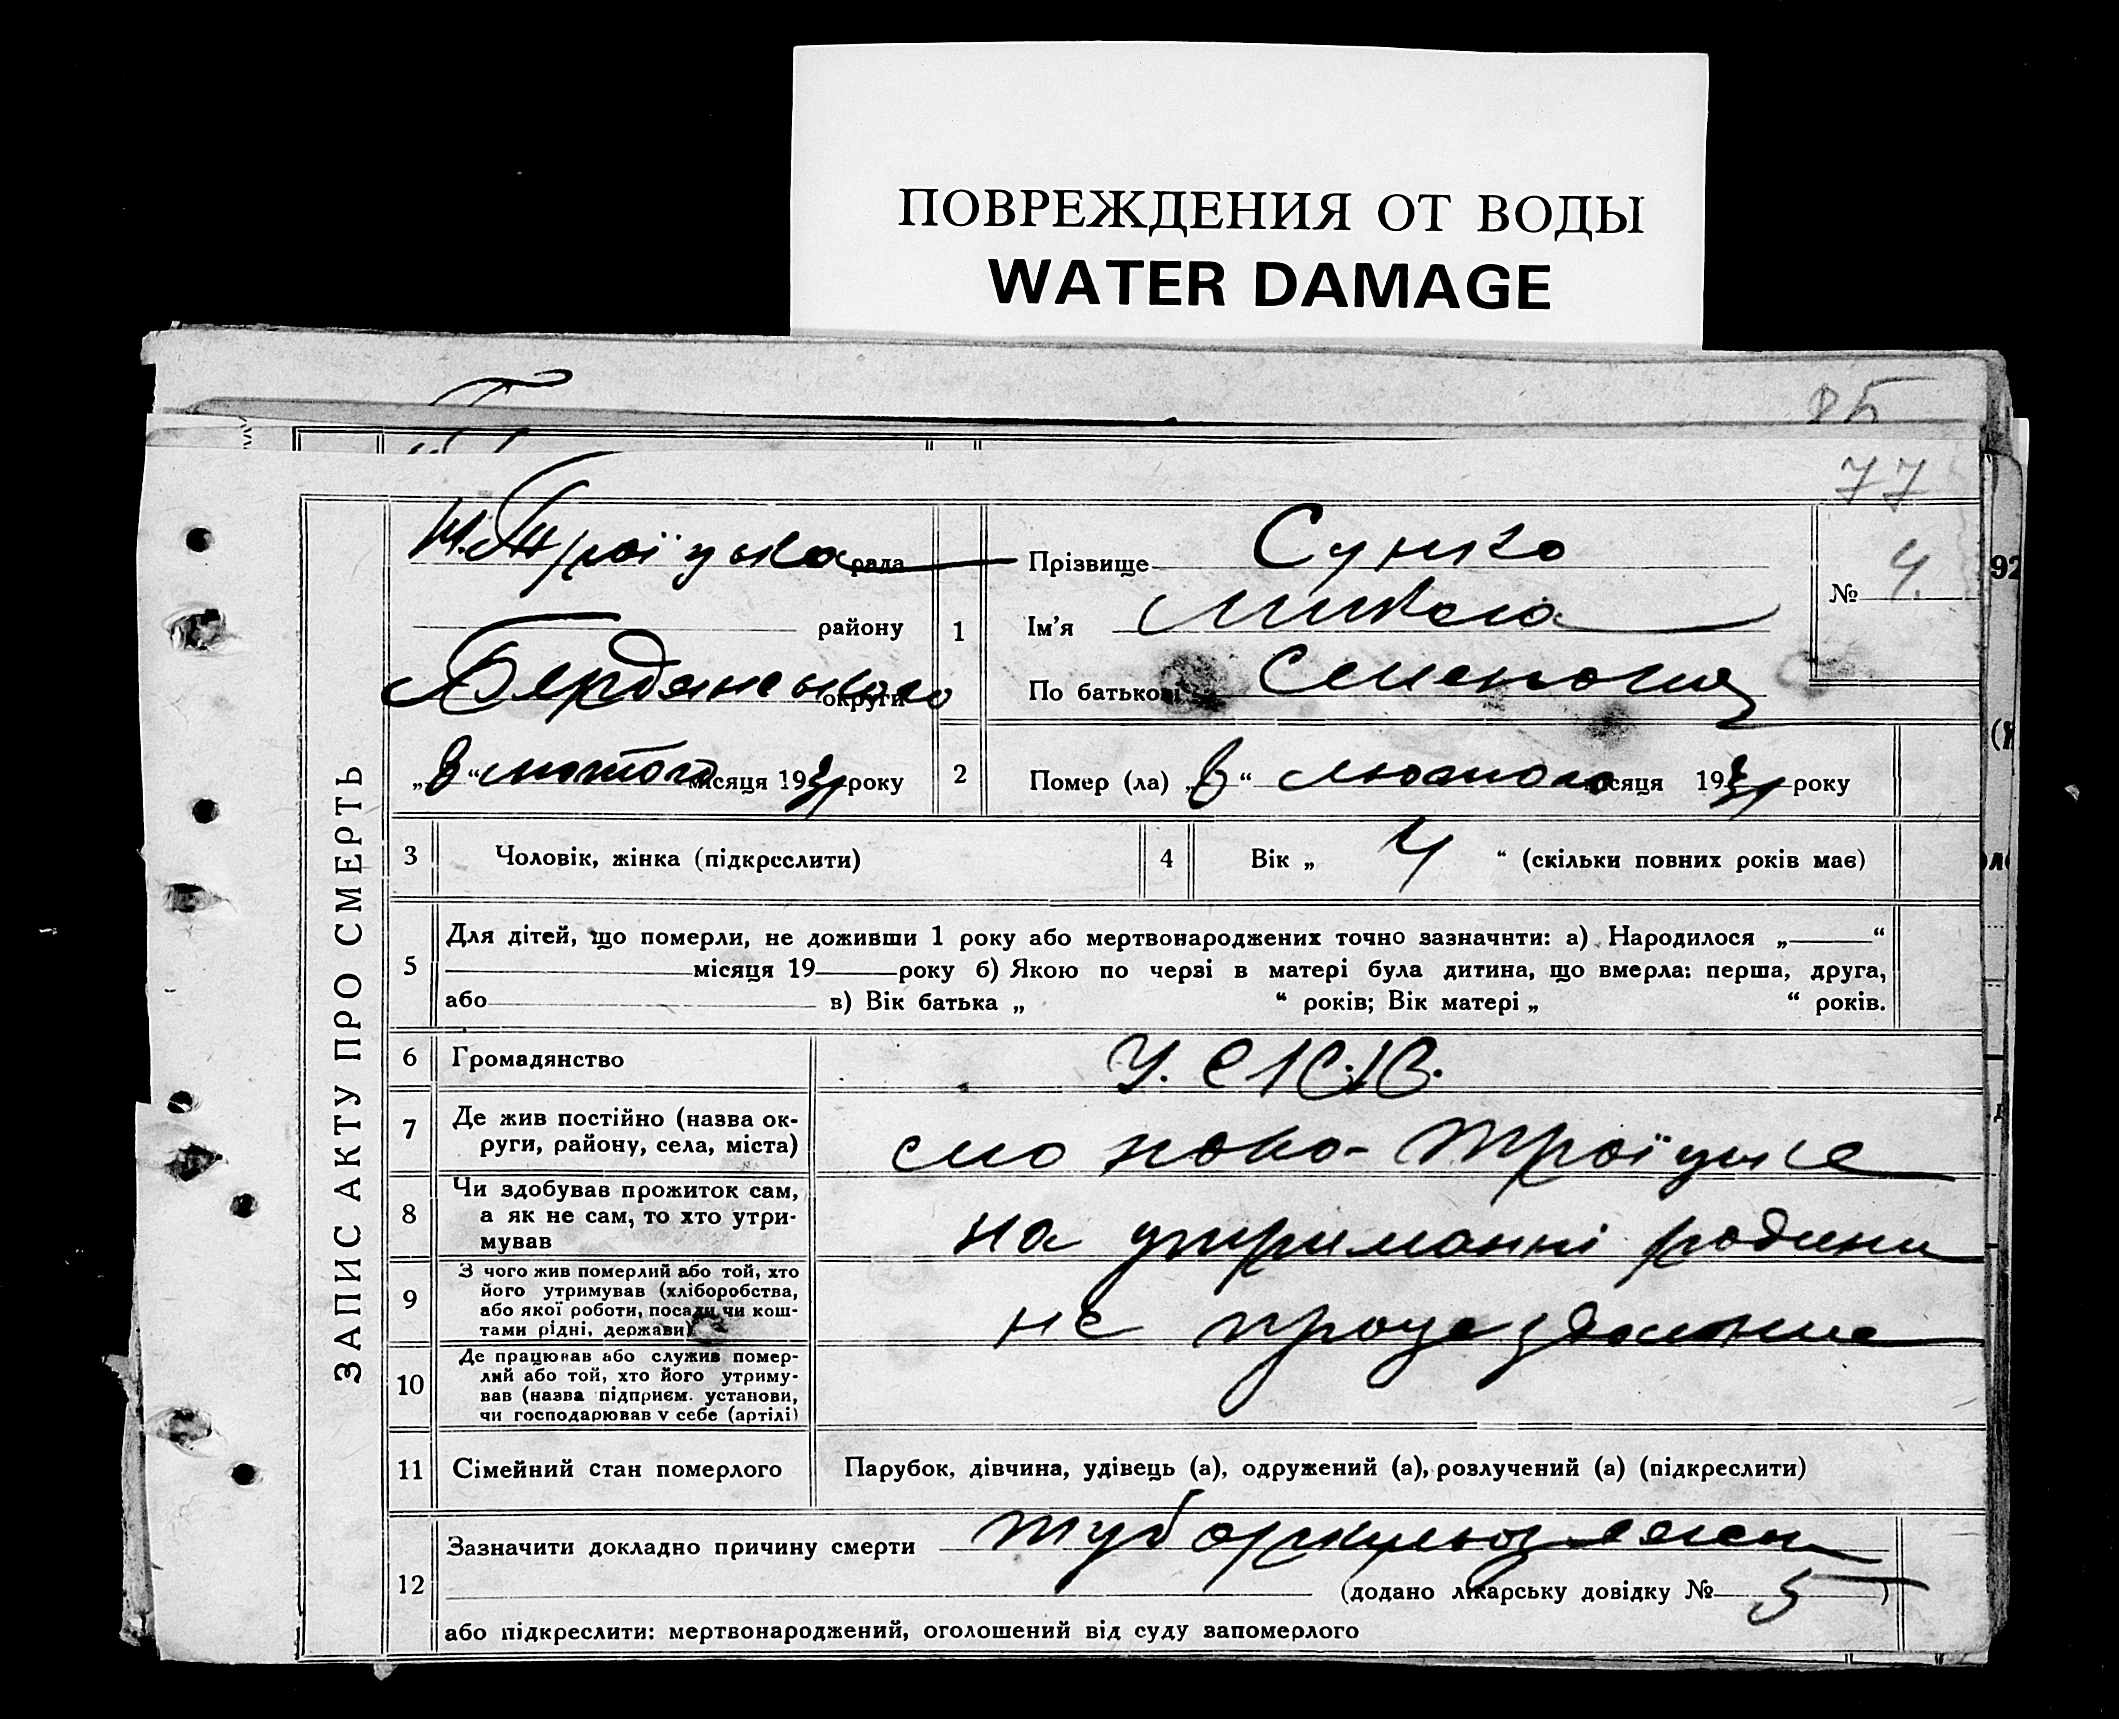 ПОВРЕЖДЕНИЯ ОТ ВОДЫ
WATER DAMAGE
85
77
ЗАПИС АКТУ ПРО СМЕРТЬ
Н. Троїцька рада
району
Бердянського округи
„8“ лютого місяця 1931 року
1
Прізвище Сунко
Ім'я Микола
По батькові Семенович
№ 4.
92
2
Помер (ла) „8“ лютого місяця 1931 року
3 Чоловік, жінка (підкреслити)
4 Вік „ 4 “ (скільки повних років має)
5
Для дітей, що померли, не доживши 1 року або мертвонароджених точно зазначити: а) Народилося „ “
місяця 19 року б) Якою по черзі в матері була дитина, що вмерла: перша, друга,
або в) Вік батька „ “ років; Вік матері „ “ років.
6 Громадянство У.С.С.Р.
7
Де жив постійно (назва ок-
руги, району, села, міста)
село Ново-Троїцьке
8
Чи здобував прожиток сам,
а як не сам, то хто утри-
мував
на утриманні родини
9
З чого жив померлий або той, хто
його утримував (хліборобства,
або якої роботи, посади чи кош-
тами рідні, держави)
не
10
Де працював або служив помер-
лий або той, хто його утриму-
вав (назва підприєм. установи,
чи господарював у себе (артілі)
11 Сімейний стан померлого
Парубок, дівчина, удівець (а), одружений (а), розлучений (а) (підкреслити)
12
Зазначити докладно причину смерти
(додано лікарську довідку № 5 )
або підкреслити: мертвонароджений, оголошений від суду запомерлого